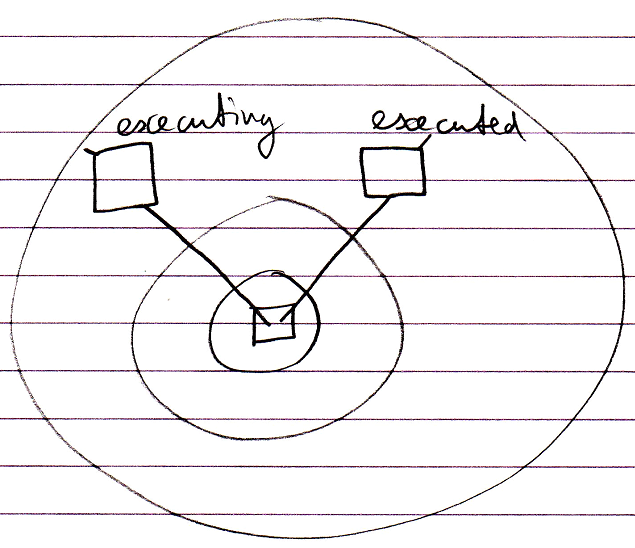 executing
executed